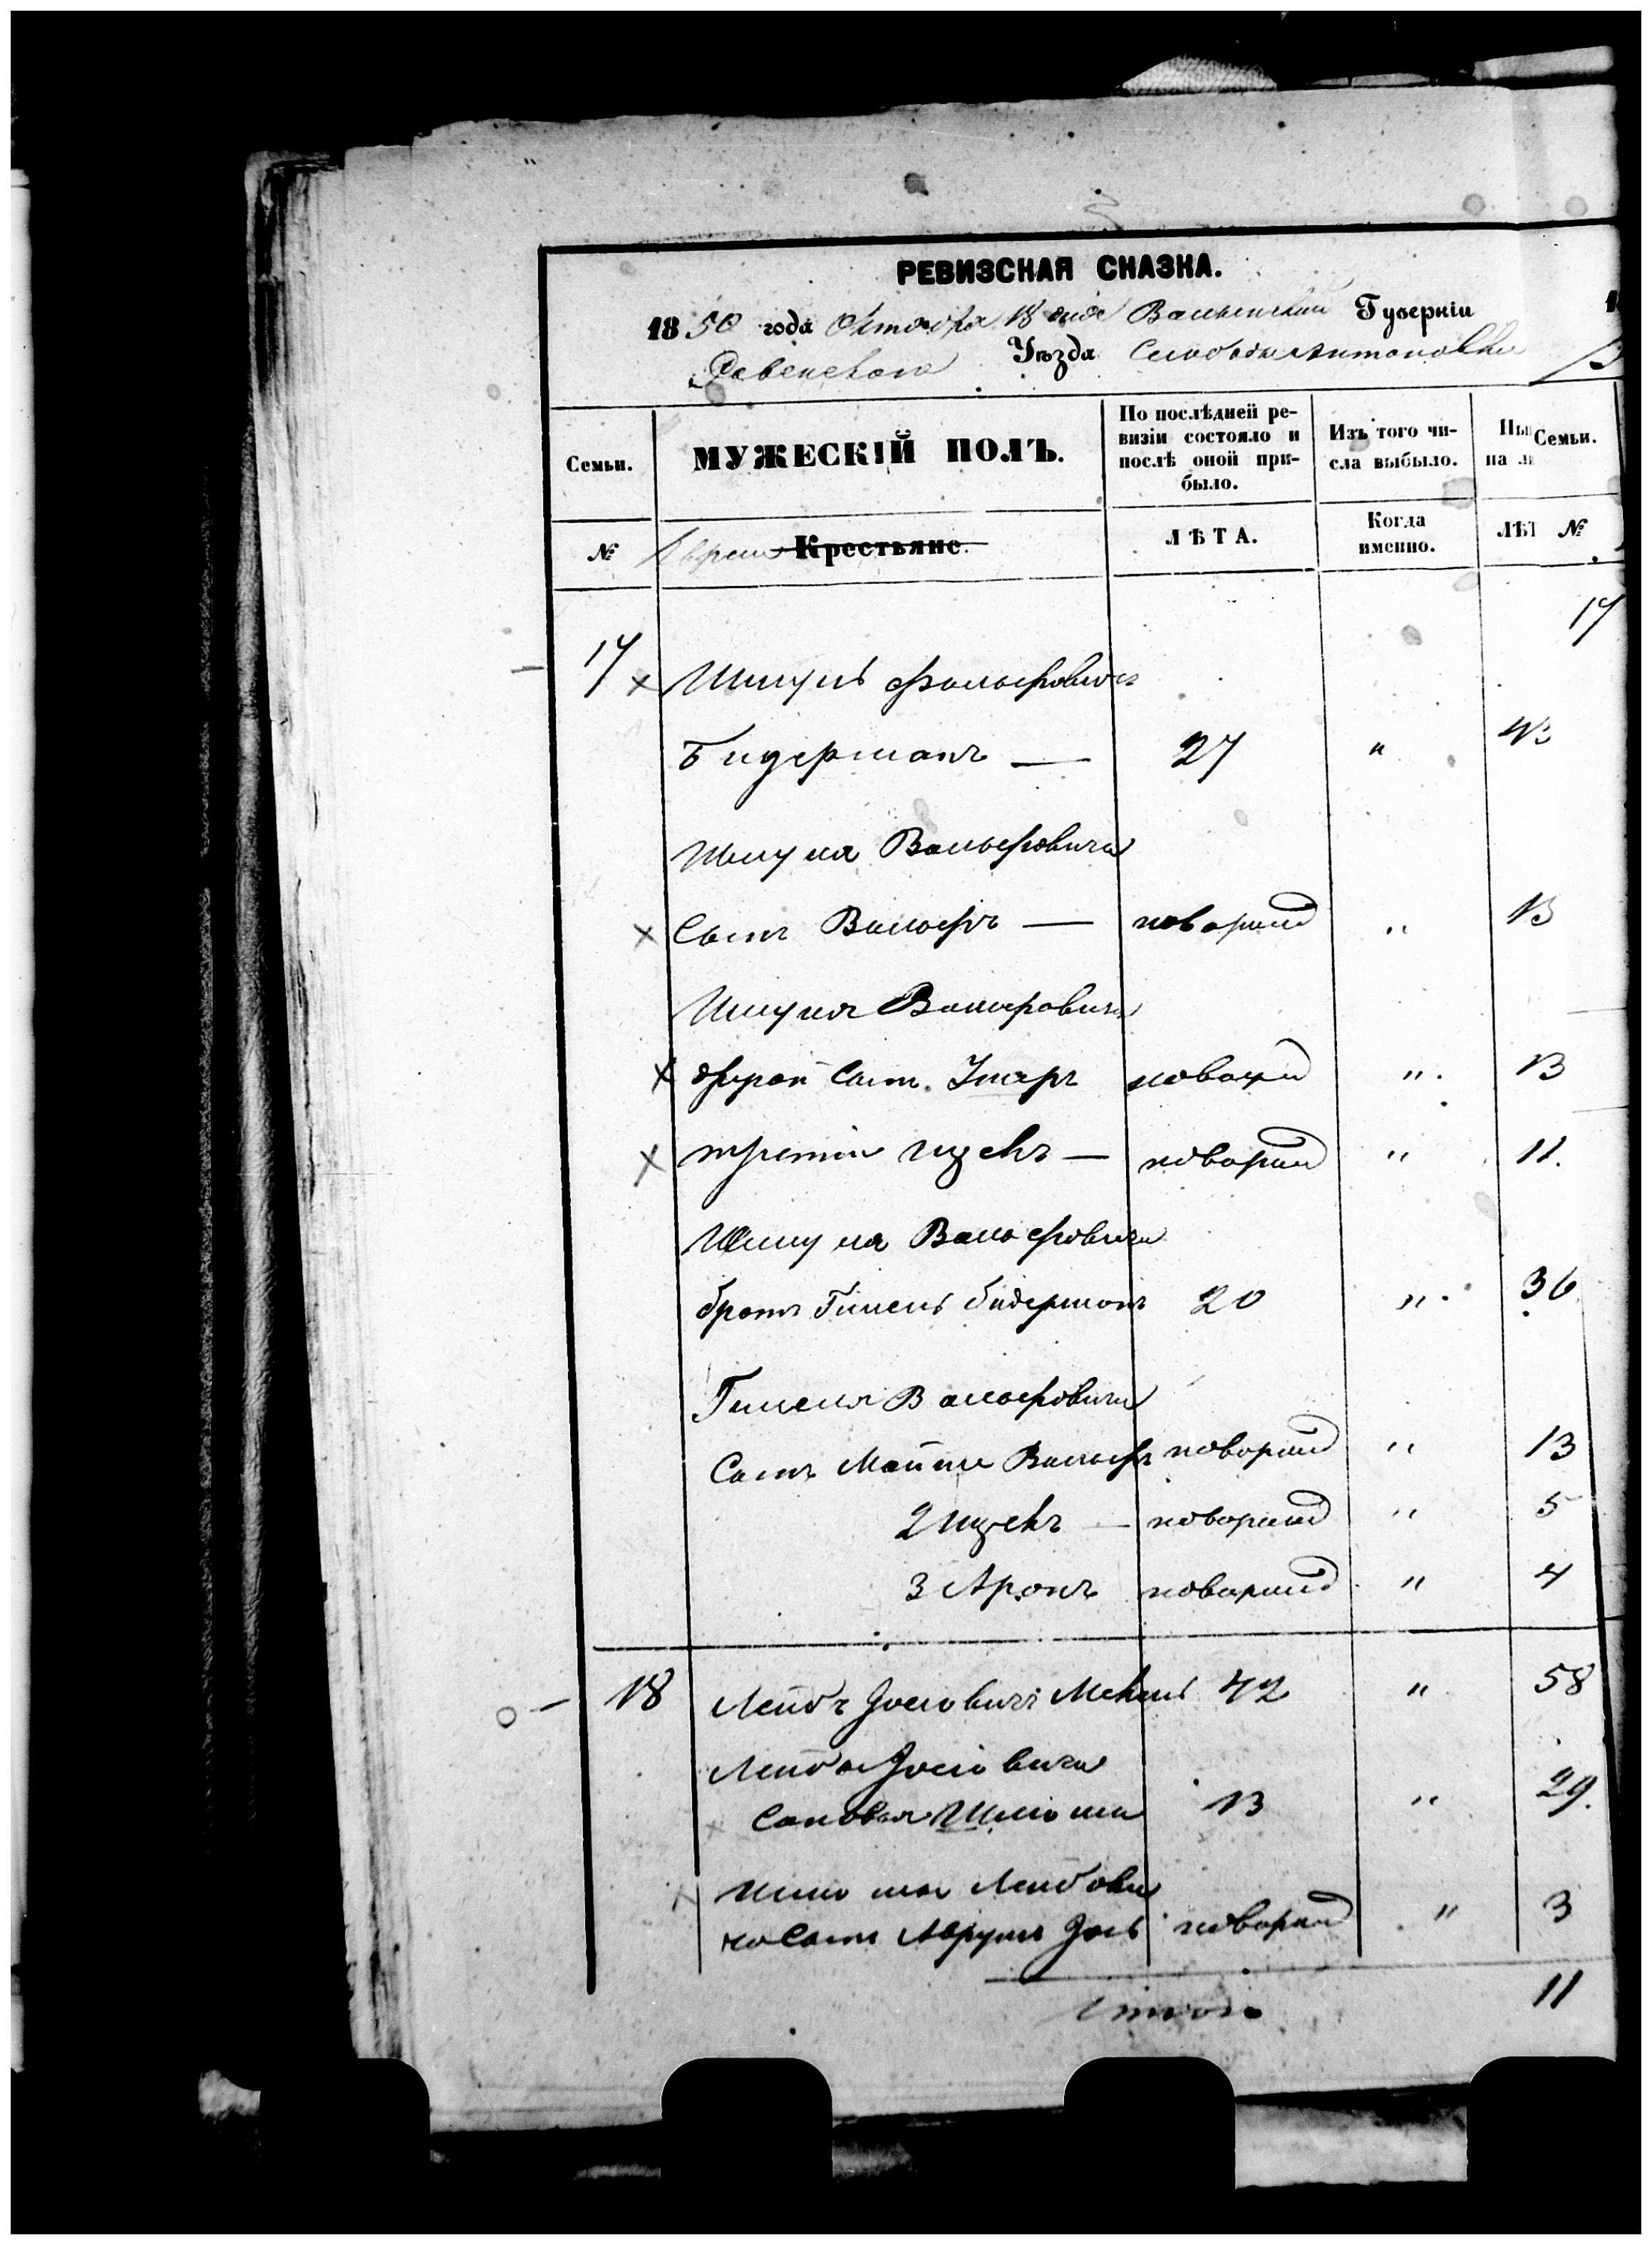 РЕВИЗСКАЯ СКАЗКА.
1850 года Октября 18 дня Волынской Губерніи
Ровенского Уѣзда Слободы Антоновки
Семьи. МУЖЕСКІЙ ПОЛЪ. По послѣдней ревизіи состояло и послѣ оной прибыло. Изъ того числа выбыло. Ны на л Семьи.
№ Евреи Крестьяне. ЛѢТА. Когда именно. ЛѢТ №
17 17
Шмуль Вольфовичъ
Бидерманъ — 27 " 43
Шмуля Вольфовича
Сынъ Вольфъ — новорожд " 13
Шмуля Вольфовича
другой Сынъ новорожд " 13
третій Ицекъ — новорожд " 11.
Шмуля Вольфовича
братъ Гимель Бидерманъ 20 " 36
Гимеля Вольфовича
Сынъ Вольфъ новорожд " 13
2 Ицекъ — новорожд " 5
3 Аронъ новорожд " 4
18 Лейбъ Іосіовичъ 42 " 58
Лейба Іосіовича
Сыновья Шлома 13 " 29.
Шлома Лейбови
ча Сынъ Аврумъ Іось новорожд " 3
Итого 11